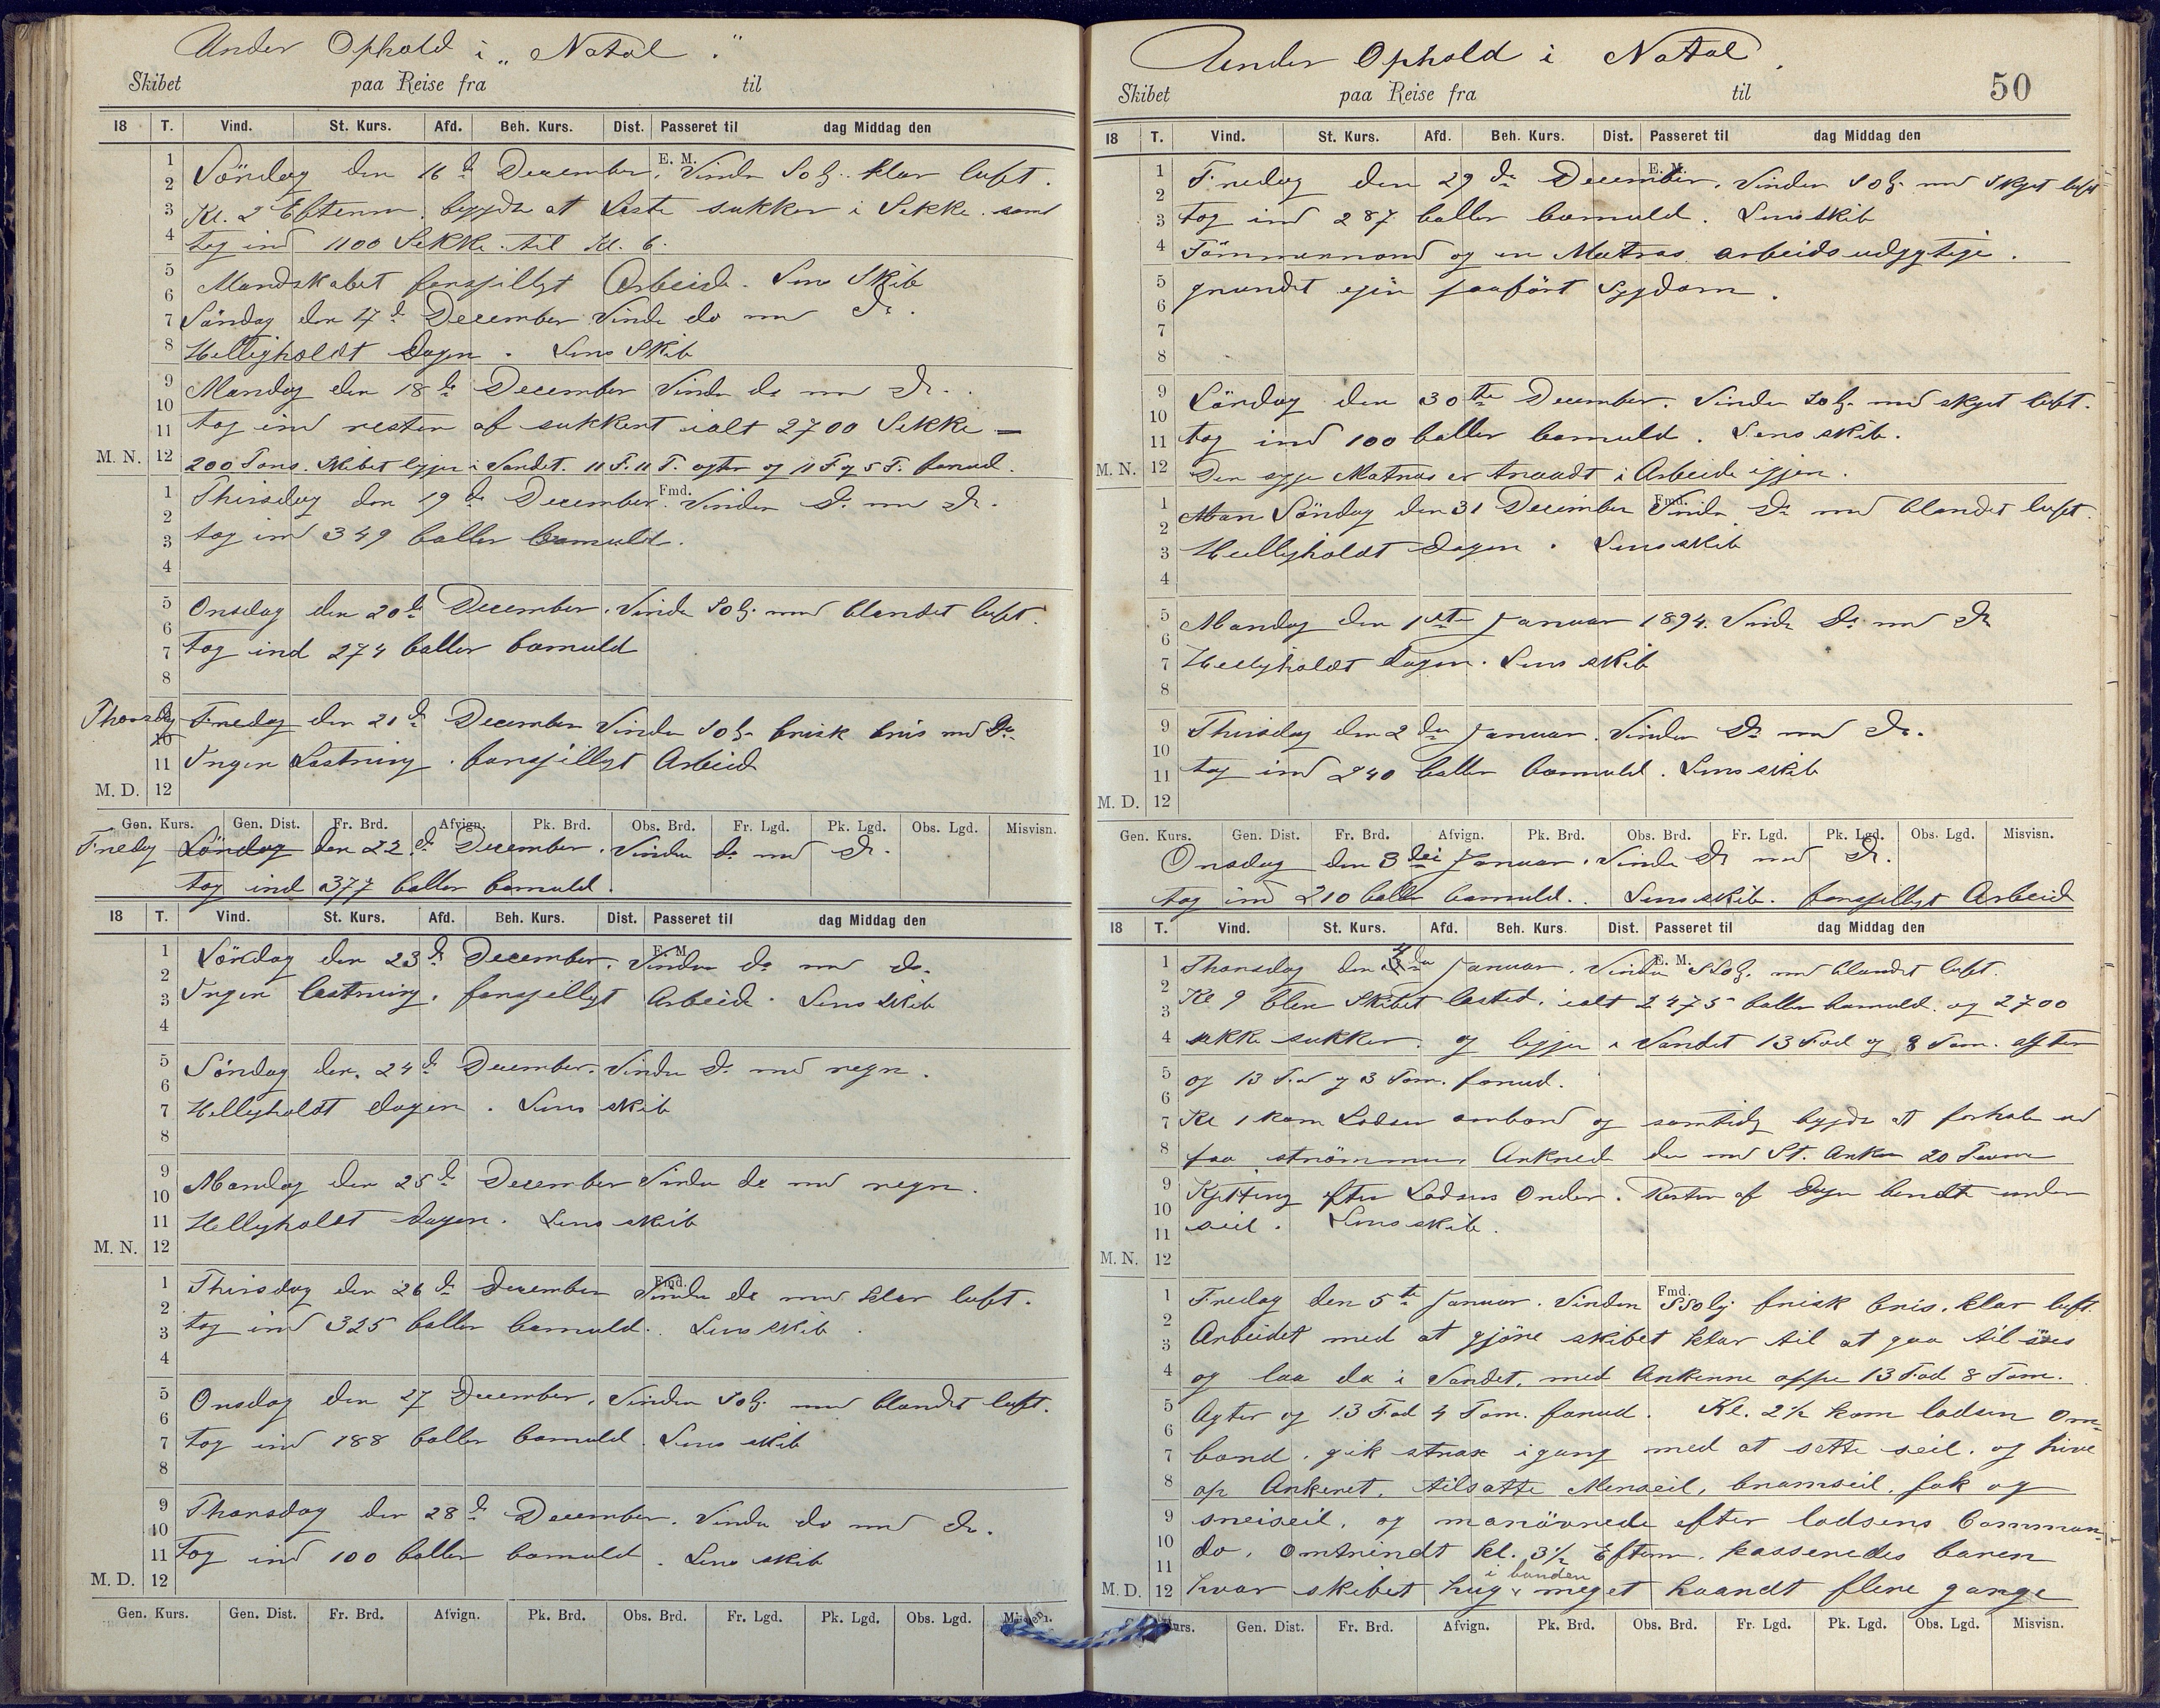 Under Ophold i „Natal".
Skibet paa Reise fra til
18 T. Vind. St. Kurs. Afd. Beh. Kurs. Dist. Passeret til dag Middag den
E. M.
Löndag den 16 d December. Vinden SO lg. klar luft.
Kl. 2 Efterm. begydte at Laste sukker i Sekke. samt
tog ind 1100 Sekke til Kl. 6.
Mandskabet forskjilligt Arbeide. Lens Skib
Söndag den 17 d December Vinden do med Do.
Helligholdt Dagen. Lens Skib
Mandag den 18 de December Vinden do med Do.
tog ind resten af sukkert ialt 2700 Sekke —
M. N.
200 Tons. Skibet ligger i Vandet. 11 F. 11 T. agter og 11 F og 5 T. forud.
Fmd.
Thirsdag den 19 de December. Vinden Do med Do.
tog ind 349 baller bomuld.
Onsdag den 20 d December. Vinden SO lg. med blandet luft.
tog ind 274 baller bomuld
Thorsdag Fredag den 21 d December Vinden SO lg. frisk bris med Do.
Ingen Lastning. forskjilligt Arbeid
M. D.
Gen. Kurs. Gen. Dist. Fr. Brd. Afvign. Pk. Brd. Obs. Brd. Fr. Lgd. Pk. Lgd. Obs. Lgd. Misvisn.
Fredag Löndag den 22 d December. Vinden do med Do.
tog ind 377 baller bomuld.
18 T. Vind. St. Kurs. Afd. Beh. Kurs. Dist. Passeret til dag Middag den
E. M.
Löndag den 23 d December. Vinden do med do.
Ingen lastning. forskjilligt Arbeide. Lens Skib
Söndag den 24 d December. Vinden Do med regn.
Helligholdt dagen. Lens skib
Mandag den 25 d December Vinden do med regn.
Helligholdt dagen. Lens skib
M. N.
Fmd.
Thirsdag den 26 d December Vinden do med klar luft.
tog ind 325 baller bomuld. Lens skib.
Onsdag den 27 December. Vinden SO lg. med blandet luft.
tog ind 188 baller bomuld. Lens skib
Thorsdag den 28 d December. Vinden do med do.
Tog ind 100 baller bomuld. Lens skib
M. D.
Gen. Kurs. Gen. Dist. Fr. Brd. Afvign. Pk. Brd. Obs. Brd. Fr. Lgd. Pk. Lgd. Obs. Lgd. Misvisn.
Under Ophold i Natal.
50
Skibet paa Reise fra til
18 T. Vind. St. Kurs. Afd. Beh. Kurs. Dist. Passeret til dag Middag den
E. M.
Fredag den 29 de December. Vinden SO lg. med skyet luft
tog ind 287 baller bomuld. Lens skib
Tömmermand og en Matros arbeidsudygtige.
grundet paafört Sygdom.
Löndag den 30 te December. Vinden SO lg. med skyet luft.
tog ind 100 baller bomuld. Lens skib.
M. N.
Den syge Matros er traadt i Arbeide igjen.
Fmd.
Man Söndag den 31 December Vinden Do med blandet luft.
Helligholdt dagen. Lens skib
Mandag den 1ste Januar 1894. Vinden Do med Do
Helligholdt dagen. Lens skib
Thirsdag den 2 den Januar. Vinden Do med Do.
tog ind 240 baller bomuld. Lens skib
M. D.
Gen. Kurs. Gen. Dist. Fr. Brd. Afvign. Pk. Brd. Obs. Brd. Fr. Lgd. Pk. Lgd. Obs. Lgd. Misvisn.
Onsdag den 3 dei Januar. Vinden Do med Do.
tog ind 210 baller bomuld. Lens skib. forskjelligt Arbeid
18 T. Vind. St. Kurs. Afd. Beh. Kurs. Dist. Passeret til dag Middag den
E. M.
Thorsdag den 4 de Januar. Vinden SSO lg. med blandet luft.
Kl 9 blev Skibet lasted. ialt 2475 baller bomuld. og 2700
sekke sukker. og ligger i Vandet 13 Fod og 8 Tom. agter
og 13 Fod og 3 Tom. forud.
Kl 1 kom Lodsen ombord og samtidig begydte at forhale ud
paa strömmen. Ankred der med St. Anker 20 Favne
Kjetting efter Lodsens Order. Resten af Dagen bendt under
seil. Lens skib.
M. N.
Fmd.
Fredag den 5 te Januar. Vinden SSO lg frisk bris. klar luft.
Arbeidet med at gjöre skibet klar til at gaa til söes
og laa da i Vandet. med Ankerne oppe 13 Fod 8 Tom.
Agter og 13 Fod 4 Tom. forud. Kl. 2½ kom lodsen om-
bord. gik strax igang med at sette seil. og hive
op Ankeret. tilsatte Merseil, bramseil, fok og
sneiseil, og manövrede efter lodsens Comman-
do. Omtrindt kl. 3½ Efterm. passeredes baren
i bunden
M. D.
hvor skibet hug meget haardt flere gange
Kurs. Gen. Dist. Fr. Brd. Afvign. Pk. Brd. Obs. Brd. Fr. Lgd. Pk. Lgd. Obs. Lgd. Misvisn.